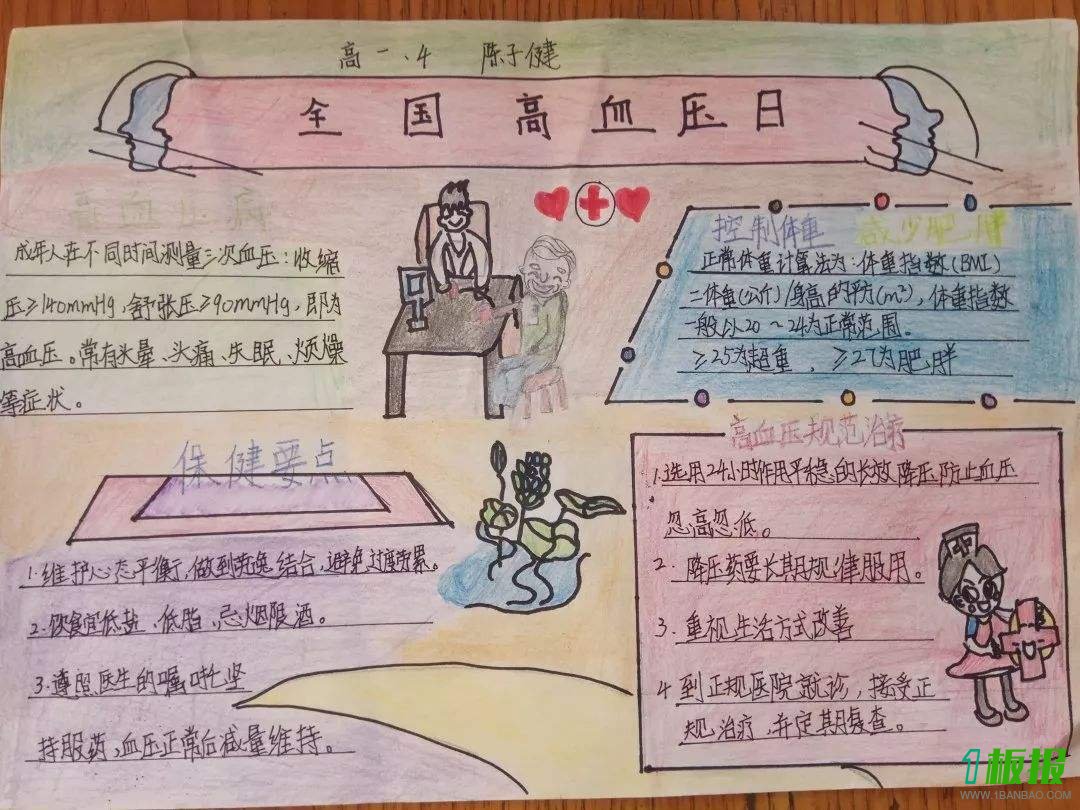 高一、4 陈子健
全国高血压日
高血压病
成年人在不同时间测量三次血压：收缩
压≥140mmHg，舒张压≥90mmHg，即为
高血压。常有头晕、头痛、失眠、烦燥
等症状。
控制体重 减少肥胖
正常体重计算法为：体重指数（BMI）
=体重(公斤)/身高的平方(m²)，体重指数
一般以20～24为正常范围。
≥25为超重，≥27为肥胖
保健要点
1.维护心态平衡，做到劳逸结合，避免过度劳累。
2.饮食宜低盐、低脂，忌烟限酒。
3.遵照医生的嘱咐坚
持服药，血压正常后减量维持。
高血压规范治疗
1.选用24小时作用平稳的长效降压防止血压
忽高忽低。
2.降压药要长期规律服用。
3.重视生活方式改善
4到正规医院就诊，接受正
规治疗，并定期复查。
1板报
WWW.1BANBAO.COM